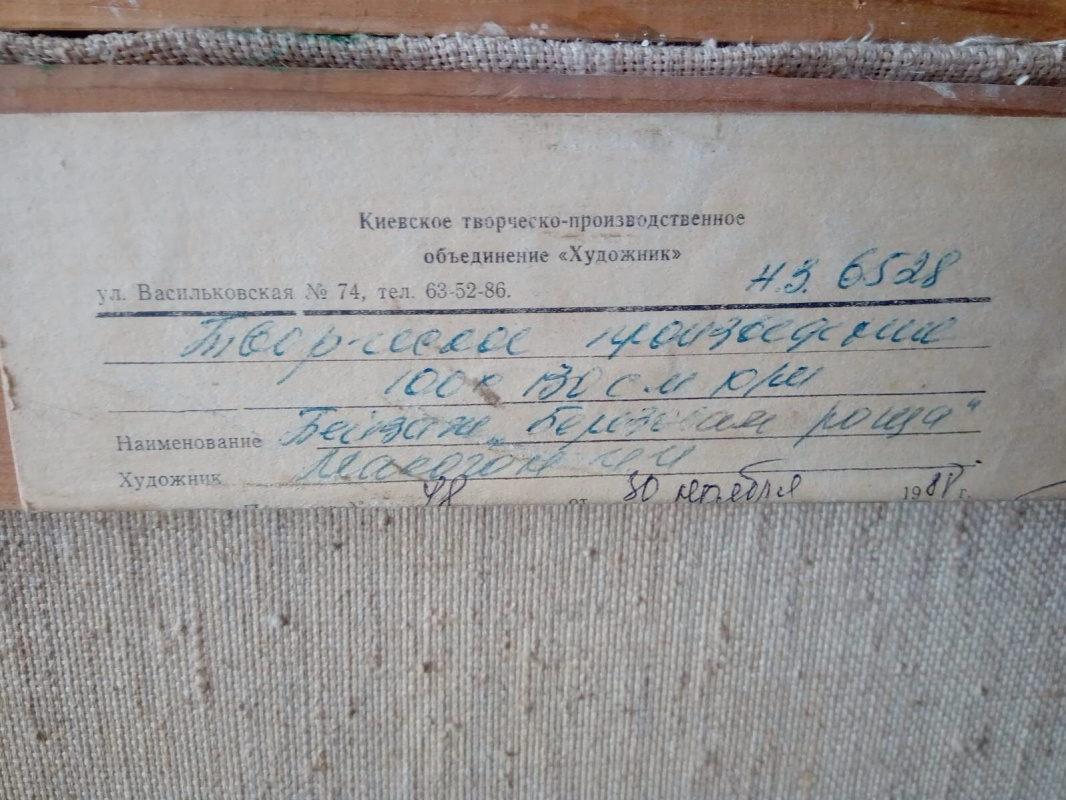 Киевское творческо-производственное
объединение «Художник»
ул. Васильковская № 74, тел. 63-52-86.
Н.З. 6528
Творческое произведение
100 х 130 см
Наименование Пейзаж „Березовая роща“
Художник Макогон
48 от 30 1988 г.